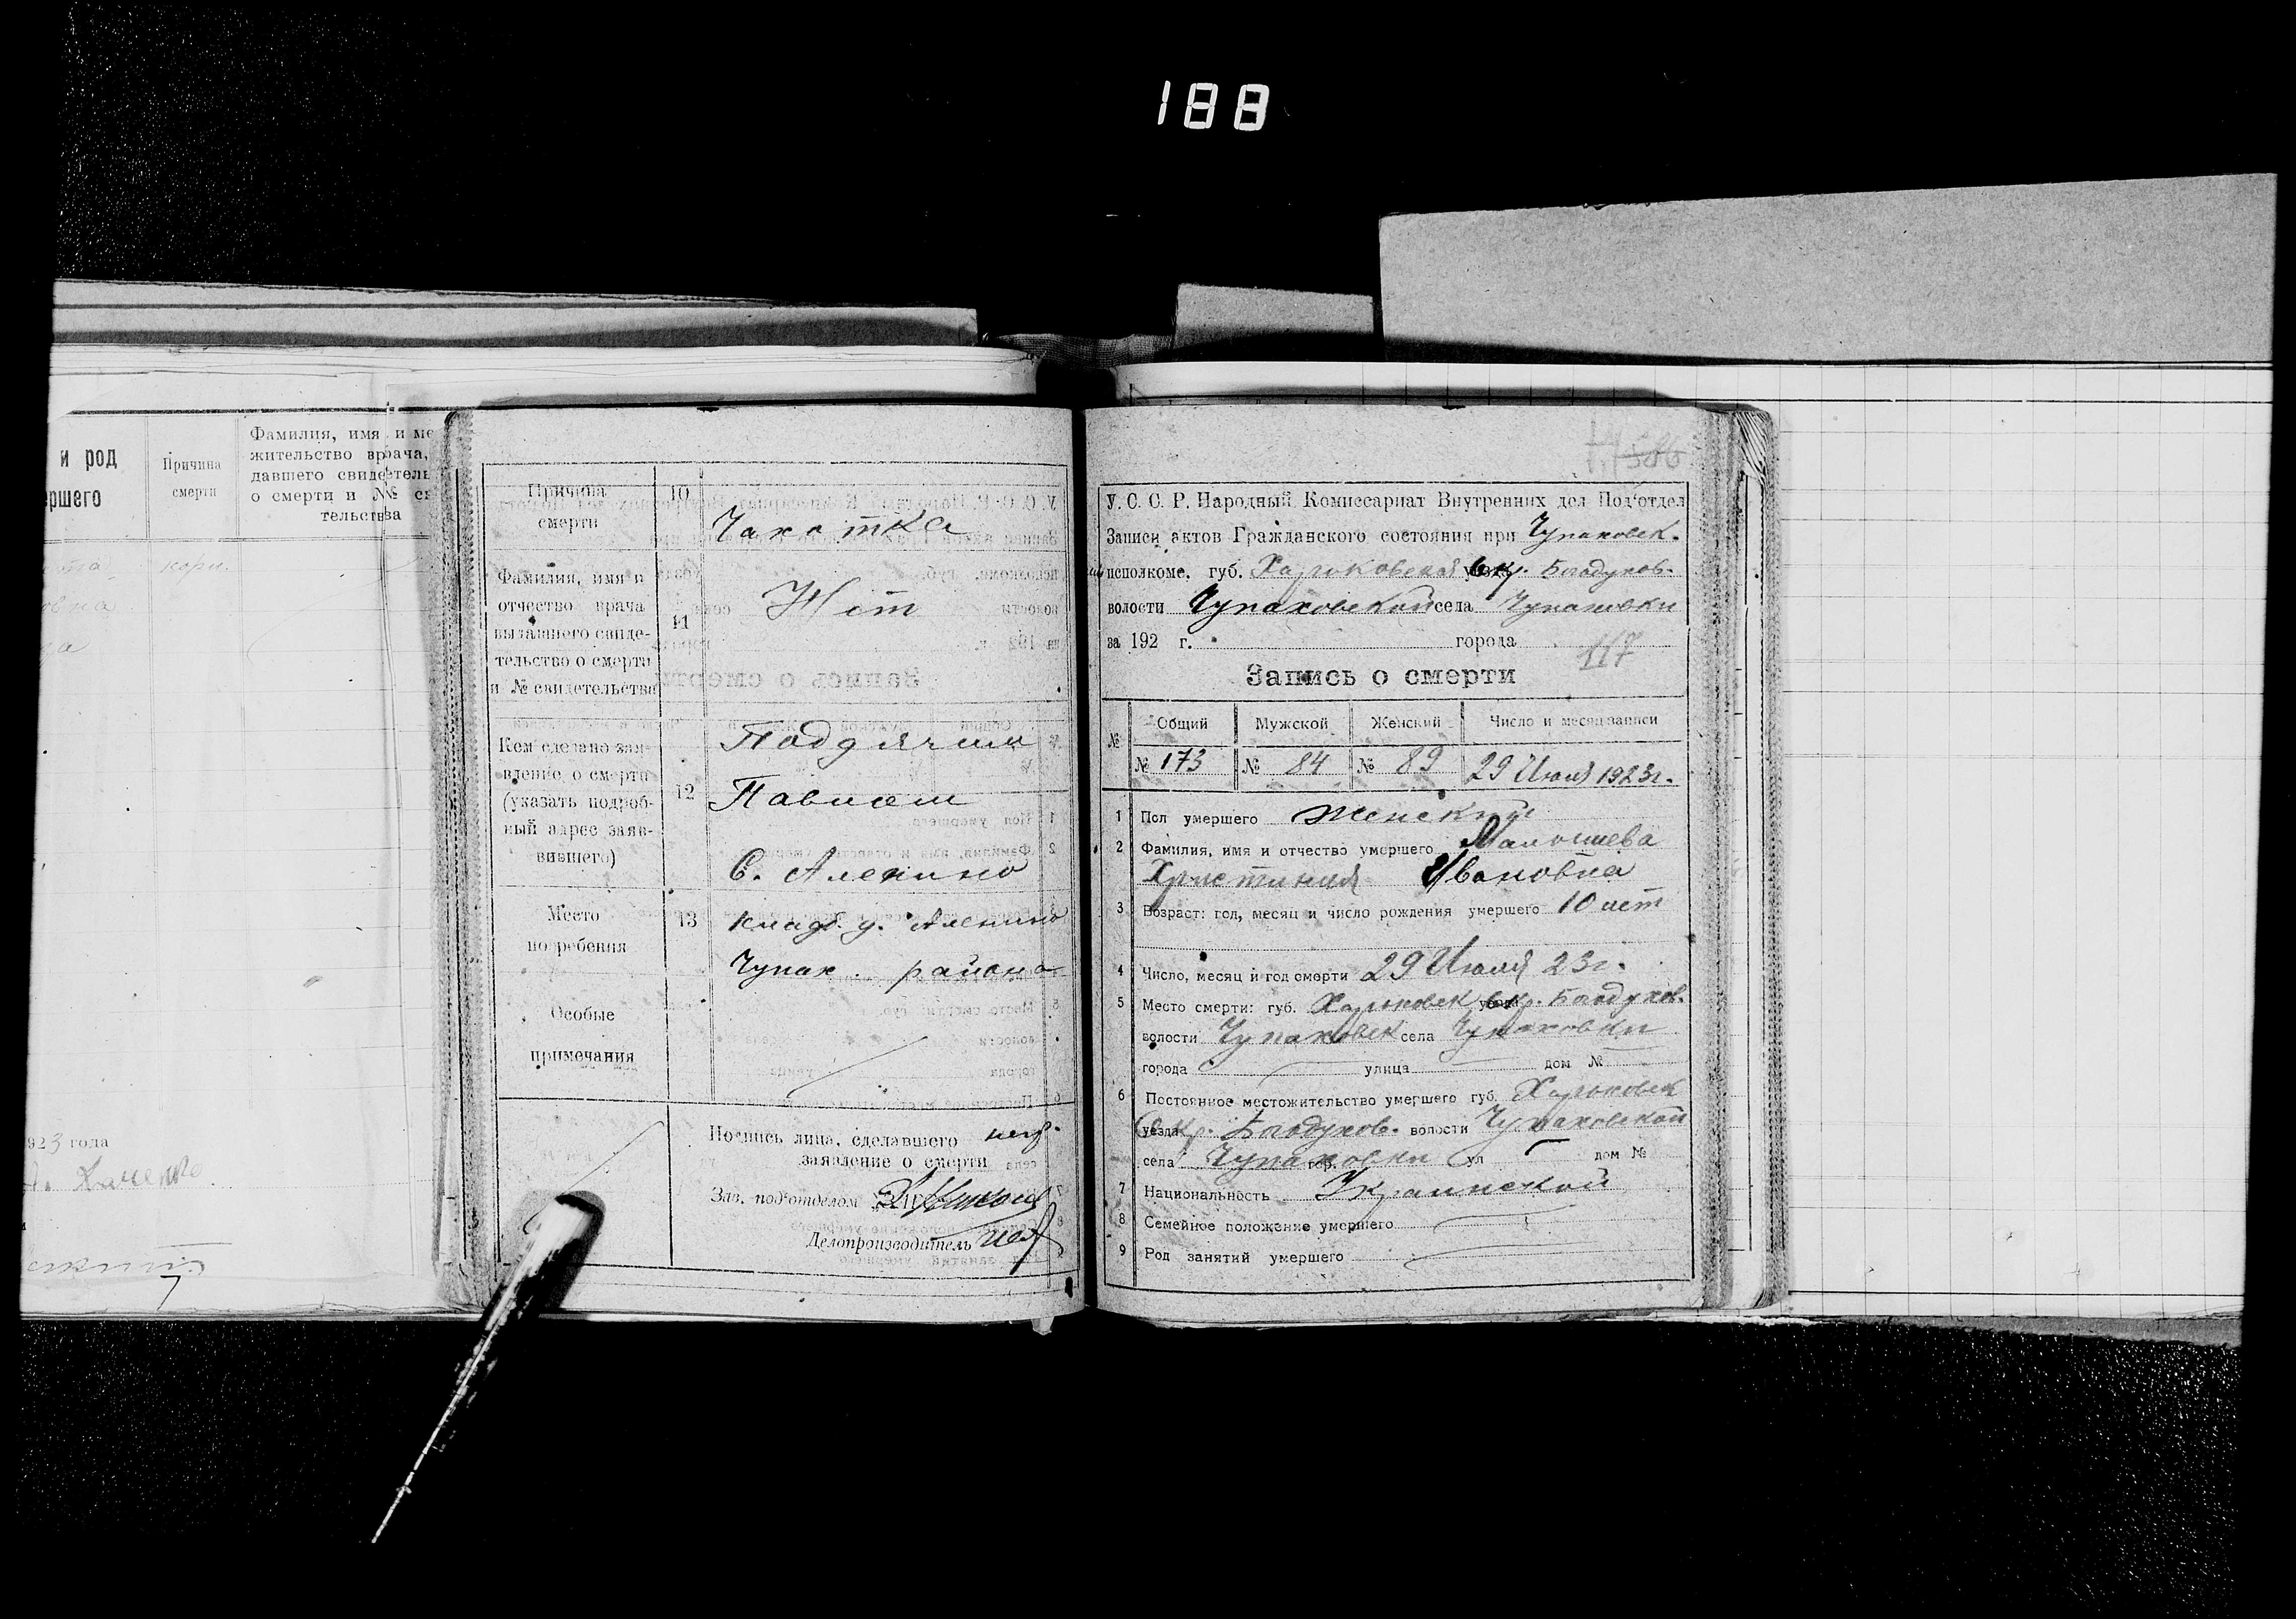 188
и род
Причина
смерти
Фамилия, имя и ме
жительство врача,
давшего свидетель
о смерти и №
тельства
кори.
923 года
Причина
смерти
10
Чахотка
Фамилия, имя и
отчество врача
выдавшего свиде-
тельство о смерти
и № свидетельства
11
Нет
Кем сделано зая-
вление о смерти
(указать подроб-
ный адрес заяв-
вившего)
12
Павлом
С. Аленино
Место
погребения
13
кладб. д. Аленино
Чупах. района
Особые
примечания
Подпись лица, сделавшего негр.
заявление о смерти
Зав. под'отделом
Делопроизводитель
586
У. С. С. Р. Народный Комиссариат Внутренних дел Под'отдел
Записи актов Гражданского состояния при Чупаховск.
исполкоме, губ. Харьковской окр. Богодухов.
волости Чупаховской села Чупаховки
за 192 г. города
117
Запись о смерти
№ Общий Мужской Женский Число и месяц записи
№ 173 № 84 № 89 29 Июля 1923г.
1 Пол умершего Женский
2 Фамилия, имя и отчество умершего Малышева
Христиния Ивановна
3 Возраст: год, месяц и число рождения умершего 10 лет
4 Число, месяц и год смерти 29 Июля 23г.
5 Место смерти: губ. Харьковск окр. Богодухов.
волости Чупаховск села Чупаховки
города улица дом №
6 Постоянное местожительство умершего губ. Харьковск
уезда окр. Богодухов. волости Чупаховской
села Чупаховки гор. ул дом №
7 Национальность Украинской
8 Семейное положение умершего
9 Род занятий умершего